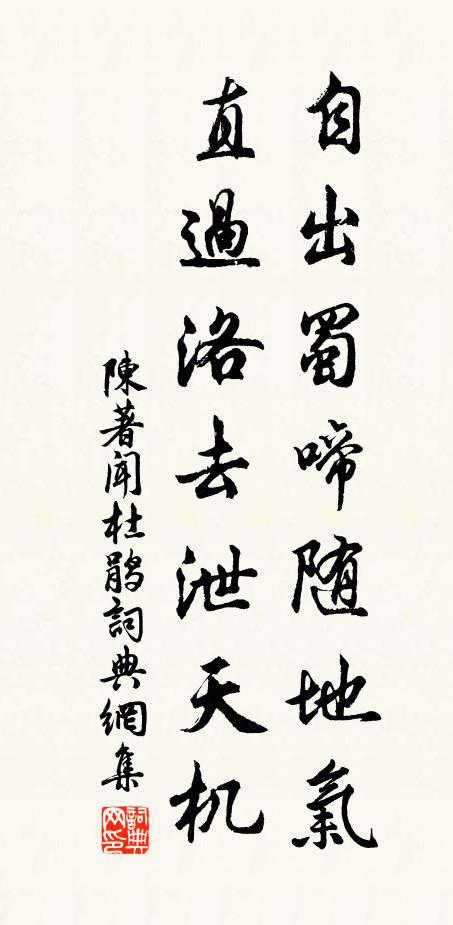 自出蜀啼随地氣
直過洛去泄天机
陳著聞杜鹃詞典網集
詞典网印